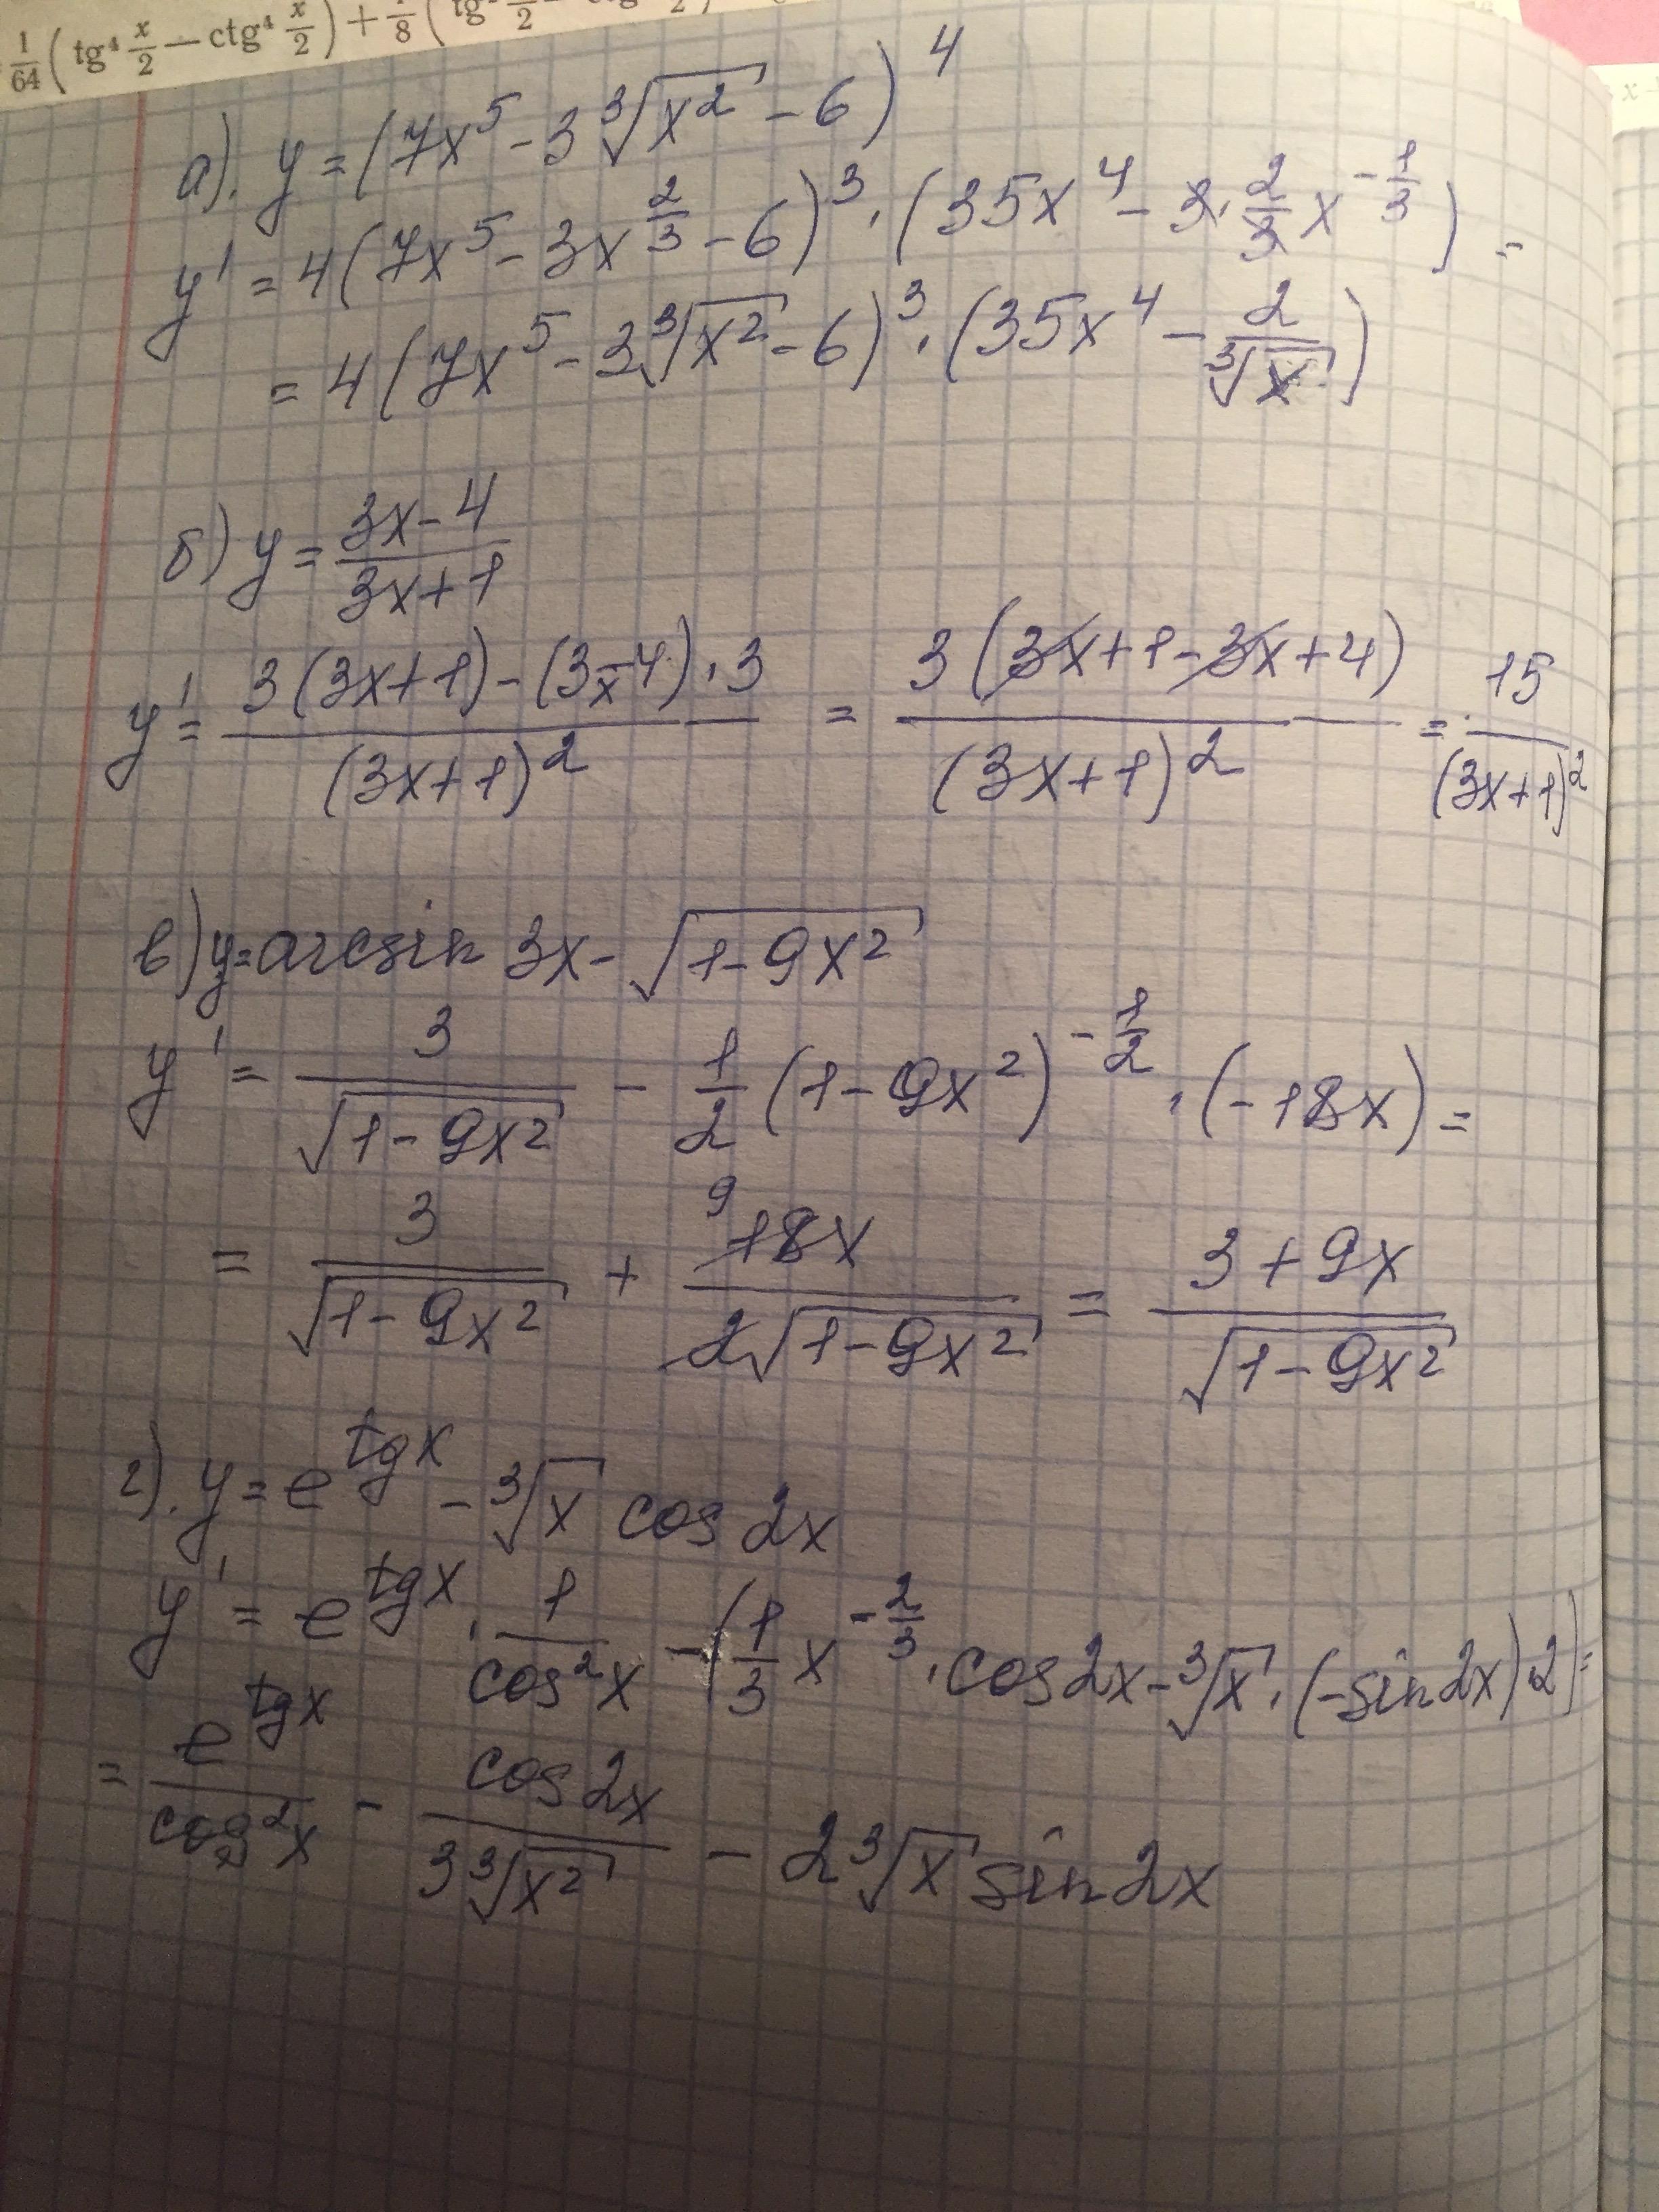 1/64 (tg⁴ x/2 − ctg⁴ x/2) + 1/8 (tg
а). y = (7x⁵ - 3∛(x²) - 6)⁴
y' = 4(7x⁵ - 3x^(2/3) - 6)³ · (35x⁴ - 3·2/3 x^(-1/3)) =
= 4(7x⁵ - 3∛(x²) - 6)³ · (35x⁴ - 2/∛x)
б) y = (3x-4)/(3x+1)
y' = (3(3x+1) - (3x-4)·3)/(3x+1)² = 3(3x+1-3x+4)/(3x+1)² = 15/(3x+1)²
в) y = arcsin 3x - √(1-9x²)
y' = 3/√(1-9x²) - 1/2 (1-9x²)^(-1/2) · (-18x) =
= 3/√(1-9x²) + 9 18x/(2√(1-9x²)) = (3+9x)/√(1-9x²)
г). y = e^(tgx) - ∛x cos 2x
y' = e^(tgx) · 1/cos²x - (1/3 x^(-2/3) · cos 2x - ∛x · (-sin 2x) 2) =
= e^(tgx)/cos²x - cos 2x/(3∛(x²)) - 2∛x sin 2x